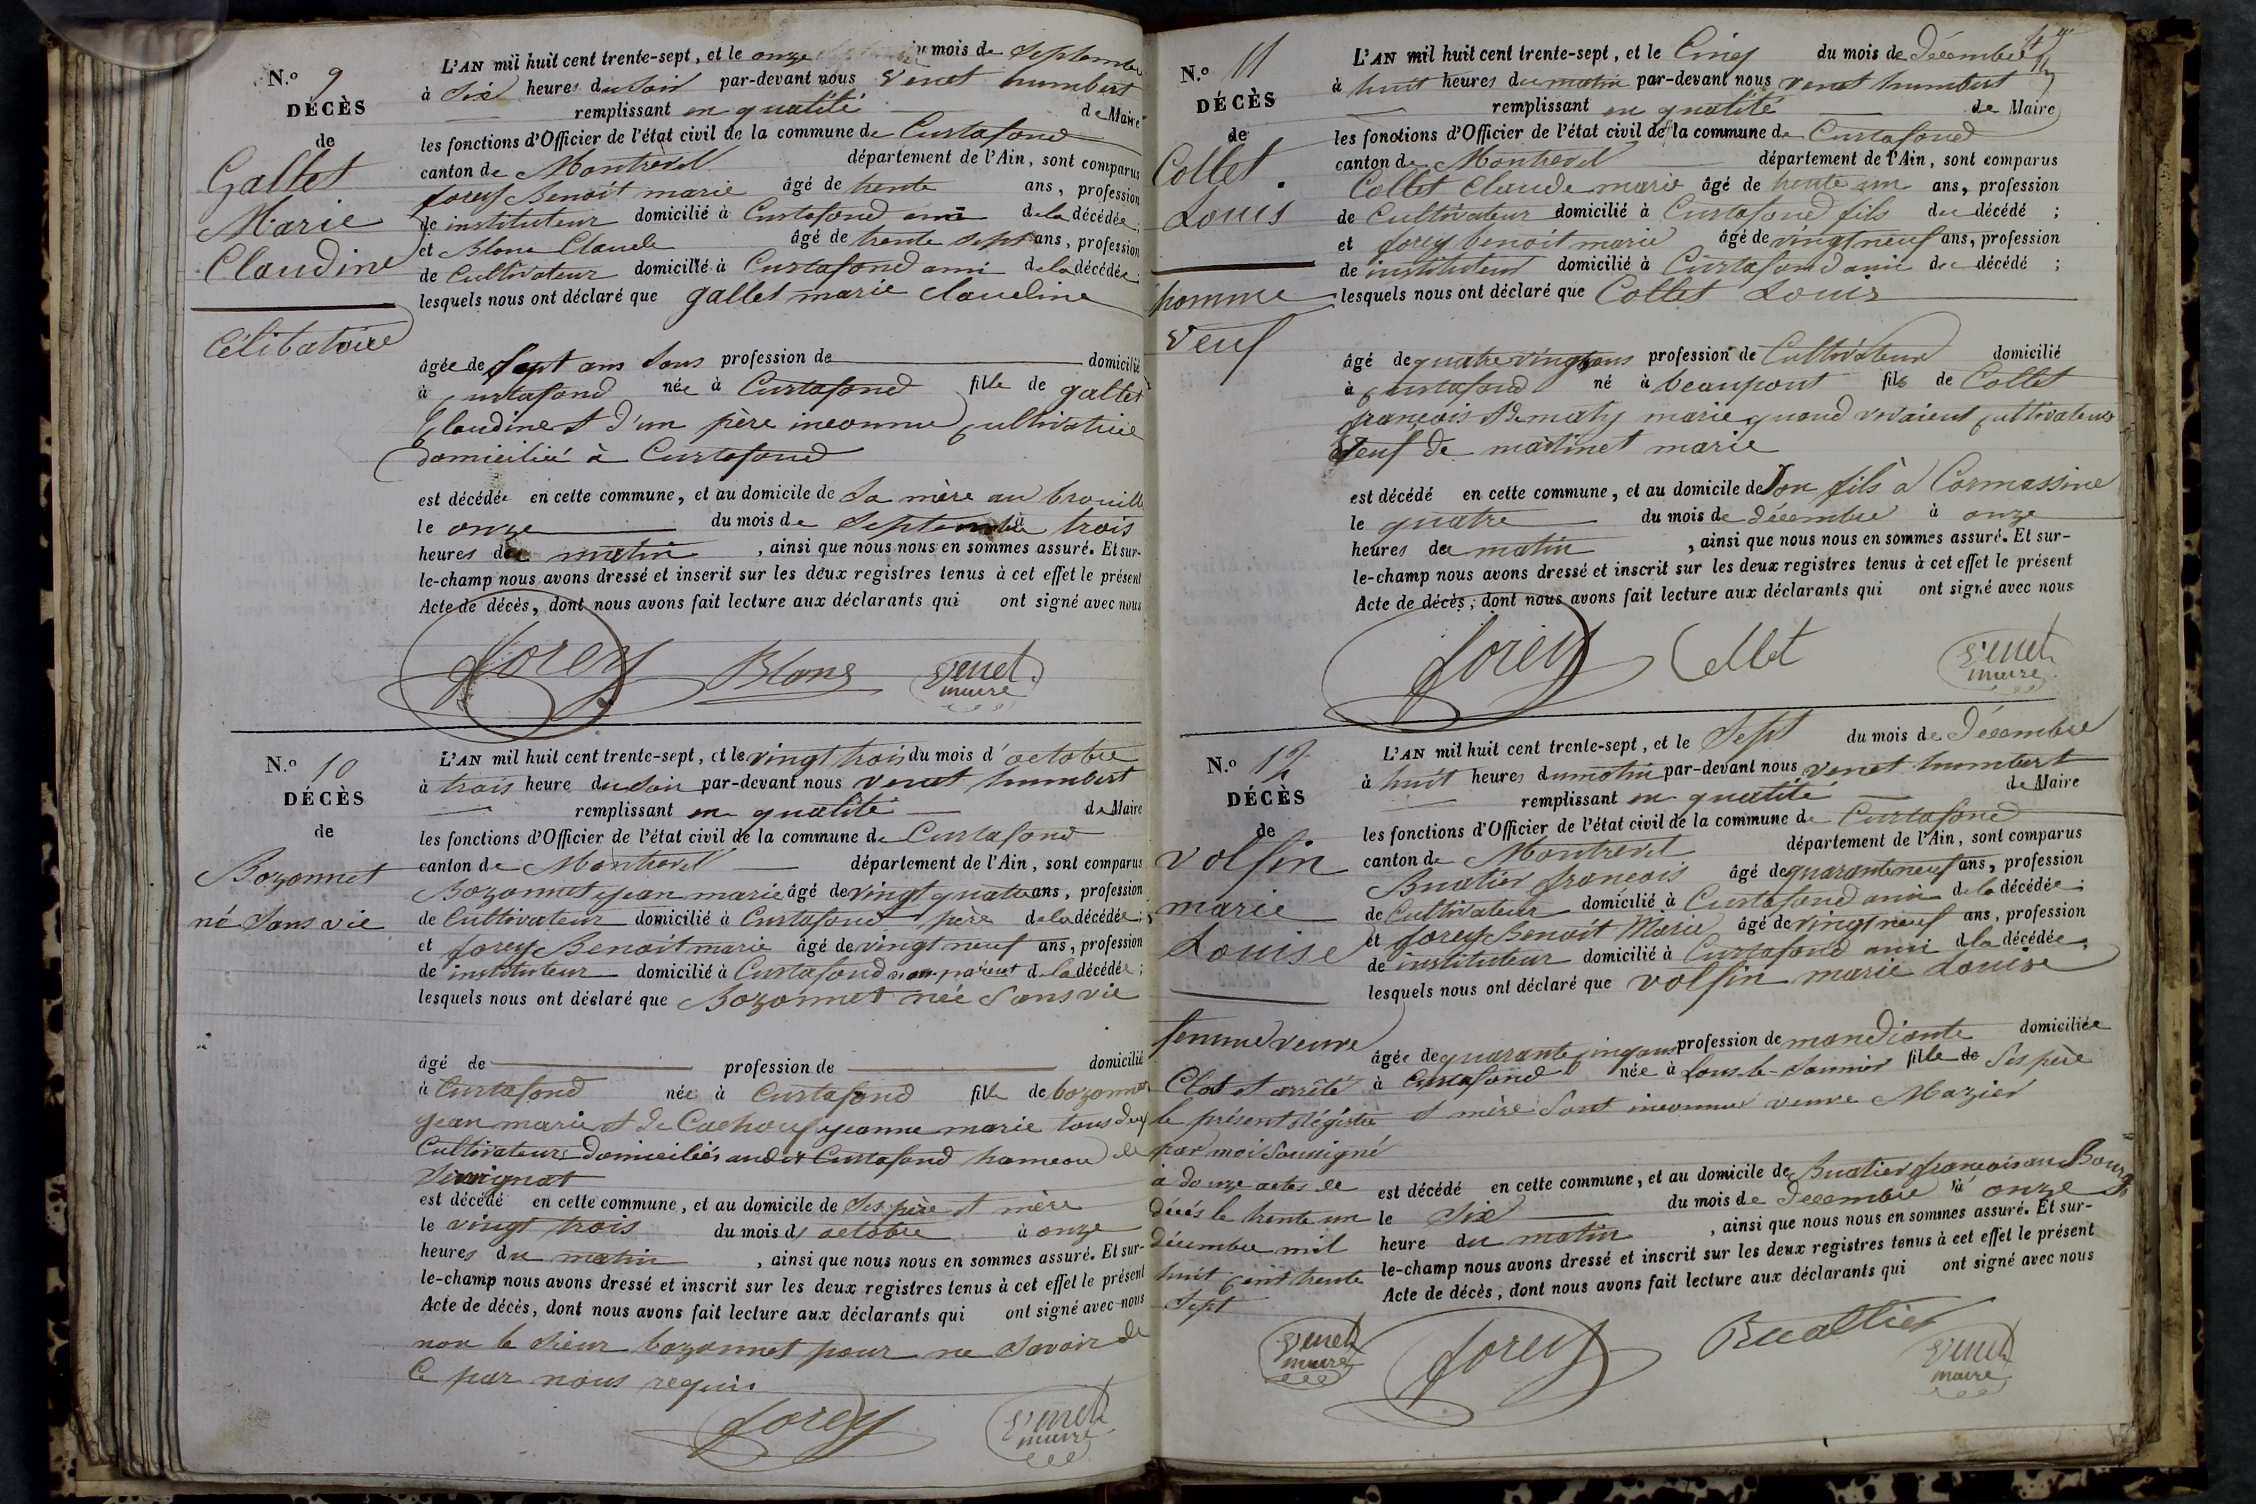 N.º 9
DÉCÈS
de
Gallet
Marie
Claudine
Célibatoire
L'AN mil huit cent trente-sept, et le onze du mois de Septembre
à Six heures du Soir par-devant nous Venet humbert
remplissant en qualité de Maire
les fonctions d'Officier de l'état civil de la commune de Curtafond
canton de Montrevel département de l'Ain, sont comparus
forey Benoit marie âgé de trente ans, profession
de instituteur domicilié à Curtafond ami de la décédée;
et Blanc Claude âgé de trente sept ans, profession
de Cultivateur domicilié à Curtafond ami de la décédée;
lesquels nous ont déclaré que gallet marie claudine
âgée de Sept ans Sans profession de domicilié
à Curtafond née à Curtafond fille de gallet
Claudine et d'un père inconnu Cultivatrice
domiciliée à Curtafond
est décédée en cette commune, et au domicile de Sa mère au brouille
le onze du mois de Septembre à trois
heures du matin, ainsi que nous nous en sommes assuré. Et sur-
le-champ nous avons dressé et inscrit sur les deux registres tenus à cet effet le présent
Acte de décès, dont nous avons fait lecture aux déclarants qui ont signé avec nous
forey Blanc Venet
maire
N.º 10
DÉCÈS
de
Bozonnet
né Sans vie
L'AN mil huit cent trente-sept, et le vingt trois du mois d'octobre
à trois heure du Soir par-devant nous venet humbert
remplissant en qualité de Maire
les fonctions d'Officier de l'état civil de la commune de Curtafond
canton de Montrevel département de l'Ain, sont comparus
Bozonnet jean marie âgé de vingt quatre ans, profession
de Cultivateur domicilié à Curtafond père de la décédée;
et forey Benoit marie âgé de vingt neuf ans, profession
de instituteur domicilié à Curtafond non-parent de la décédée;
lesquels nous ont déclaré que Bozonnet née Sans vie
âgé de profession de domicilié
à Curtafond née à Curtafond fille de bozonnet
jean marie et de Cachouf jeanne marie tous deux
Cultivateurs domiciliés audit Curtafond hameau de
est décédé en cette commune, et au domicile de Ses père et mère
le vingt trois du mois d' octobre à onze
heures du matin, ainsi que nous nous en sommes assuré. Et sur-
le-champ nous avons dressé et inscrit sur les deux registres tenus à cet effet le présent
Acte de décès, dont nous avons fait lecture aux déclarants qui ont signé avec nous
non le Sieur bozonnet pour ne Savoir de
Ce par nous requis
forey Venet
maire
N.º 11
DÉCÈS
de
Collet
Louis
homme
Veuf
L'AN mil huit cent trente-sept, et le Cinq du mois de Décembre
à huit heures du matin par-devant nous venet humbert
remplissant en qualité de Maire
les fonctions d'Officier de l'état civil de la commune de Curtafond
canton de Montrevel département de l'Ain, sont comparus
Collet Claude marie âgé de trente un ans, profession
de Cultivateur domicilié à Curtafond fils du décédé;
et forey benoit marie âgé de vingt neuf ans, profession
de instituteur domicilié à Curtafond ami du décédé;
lesquels nous ont déclaré que Collet Louis
âgé de quatre vingt ans profession de Cultivateur domicilié
à Curtafond né à beaupont fils de Collet
françois et de maty marie quand vivaient Cultivateurs
Veuf de martinet marie
est décédé en cette commune, et au domicile de Son fils à Cormassine
le quatre du mois de décembre à onze
heures du matin, ainsi que nous nous en sommes assuré. Et sur-
le-champ nous avons dressé et inscrit sur les deux registres tenus à cet effet le présent
Acte de décès, dont nous avons fait lecture aux déclarants qui ont signé avec nous
forey Collet Venet
maire
N.º 12
DÉCÈS
de
volfin
marie
Louise
femme veuve
L'AN mil huit cent trente-sept, et le Sept du mois de Décembre
à huit heures du matin par-devant nous venet humbert
remplissant en qualité de Maire
les fonctions d'Officier de l'état civil de la commune de Curtafond
canton de Montrevel département de l'Ain, sont comparus
Buatier françois âgé de quarante neuf ans, profession
de Cultivateur domicilié à Curtafond ami de la décédée;
et forey Benoit Marie âgé de vingt neuf ans, profession
de instituteur domicilié à Curtafond ami de la décédée;
lesquels nous ont déclaré que volfin marie Louise
âgée de quarante cinq ans profession de mandiante domiciliée
à Curtafond née à Lons-le-Saunier fille de Ses père
et mère Sont inconnus veuve Mazier
est décédé en cette commune, et au domicile de Buatier françois au Bourg
le Six du mois de Decembre à onze
heure du matin, ainsi que nous nous en sommes assuré. Et sur-
le-champ nous avons dressé et inscrit sur les deux registres tenus à cet effet le présent
Acte de décès, dont nous avons fait lecture aux déclarants qui ont signé avec nous
forey Buattier Venet
maire
Clos et arrêté
le présent Régistre
par moi Soussigné
à douze actes de
décés le trente un
décembre mil
huit cent trente
Sept
Venet
maire